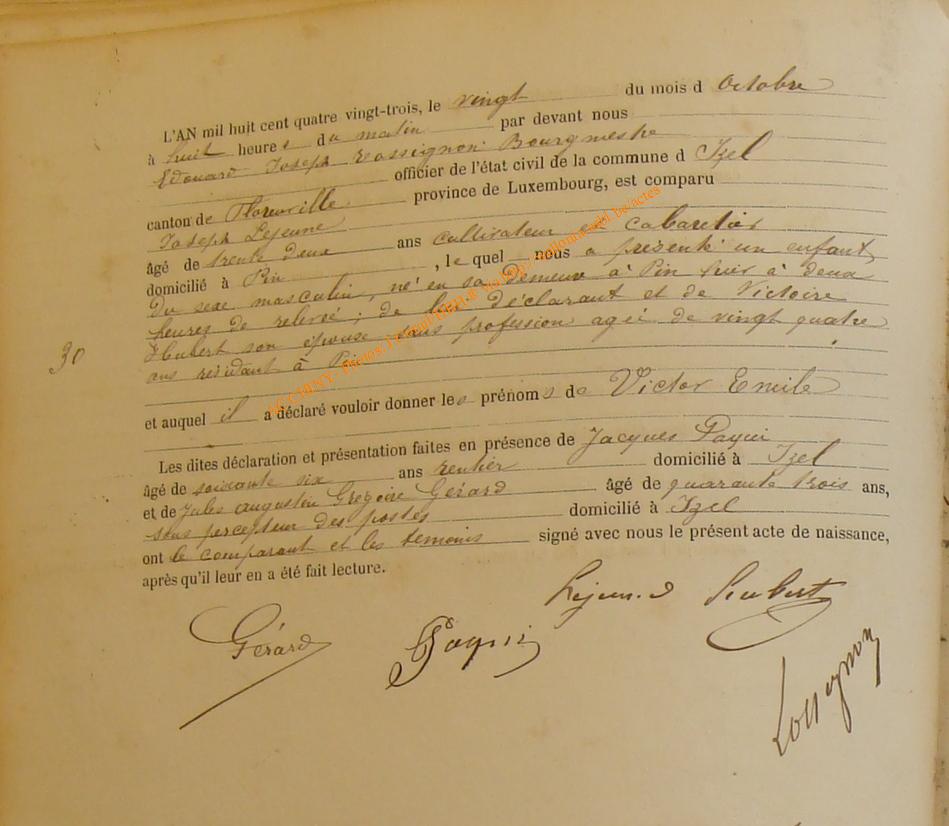 L'AN mil huit cent quatre vingt-trois, le vingt du mois d Octobre
à huit heures du matin par devant nous
Edouard Joseph Rossignon Bourgmestre
officier de l'état civil de la commune d Izel
canton de Florenville province de Luxembourg, est comparu
Joseph Lejeune
âgé de trente deux ans cultivateur et cabaretier
domicilié à Pin, le quel nous a présenté un enfant
Du sexe masculin, né en sa demeure à Pin hier à deux
heures de relevée; de lui déclarant et de Victoire
Hubert son épouse sans profession agée de vingt quatre
ans residant à Pin
30
et auquel il a déclaré vouloir donner les prénoms de Victor Emile
Les dites déclaration et présentation faites en présence de Jacques Paqui
âgé de soixante six ans rentier domicilié à Izel
et de Jules augustin Gregoire Gérard âgé de quarante trois ans,
sous percepteur des postes domicilié à Izel
ont le comparant et les temoins signé avec nous le présent acte de naissance,
après qu'il leur en a été fait lecture.
Lejeune Hubert
Gérard Paqui
Rossignon